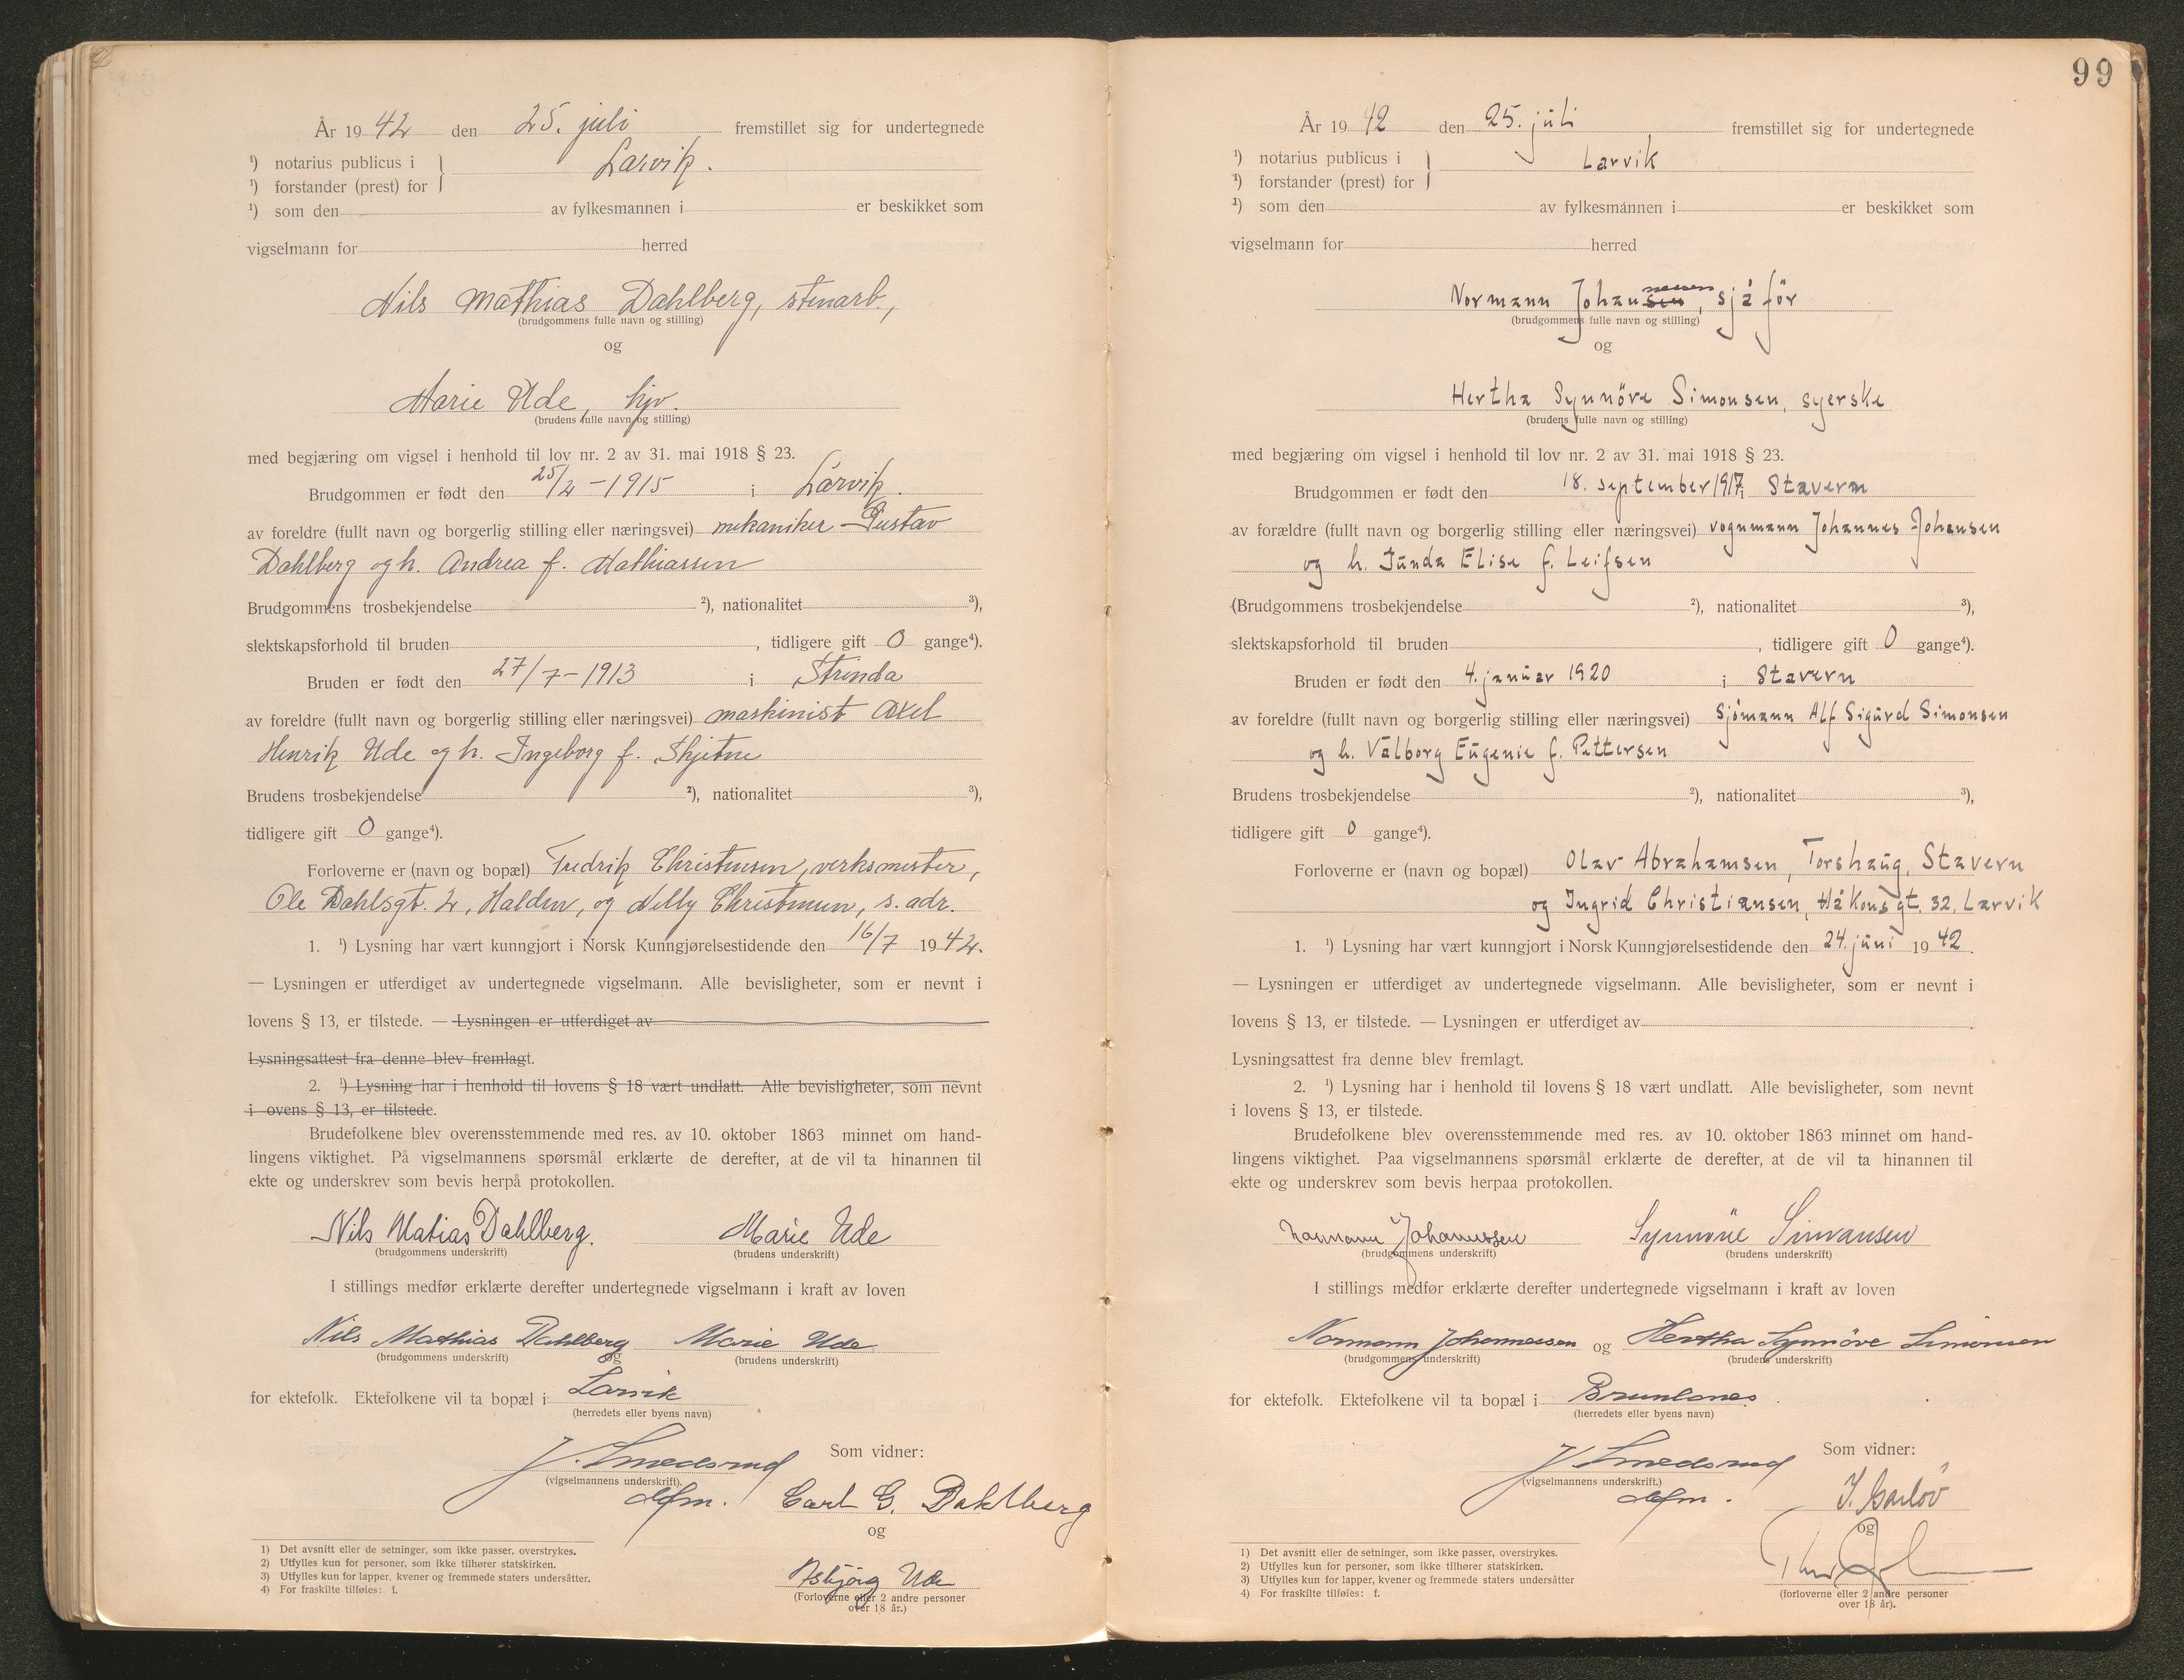 År 19 42 den 25. juli fremstillet sig for undertegnede
¹) notarius publicus i } Larvik.
¹) forstander (prest) for
¹) som den av fylkesmannen i er beskikket som
vigselmann for herred
Nils Mathias Dahlberg, stenarb.,
(brudgommens fulle navn og stilling)
og
Marie Ude, hjv.
(brudens fulle navn og stilling)
med begjæring om vigsel i henhold til lov nr. 2 av 31. mai 1918 § 23.
Brudgommen er født den 25/2-1915 i Larvik.
av foreldre (fullt navn og borgerlig stilling eller næringsvei) mekaniker Gustav
Dahlberg og h. Andrea f. Mathiassen
Brudgommens trosbekjendelse ²), nationalitet ³),
slektskapsforhold til bruden , tidligere gift 0 gange⁴).
Bruden er født den 27/7-1913 i Strinda
av foreldre (fullt navn og borgerlig stilling eller næringsvei) maskinist Axel
Henrik Ude og h. Ingeborg f. Skjetne
Brudens trosbekjendelse ²), nationalitet ³),
tidligere gift 0 gange⁴).
Forloverne er (navn og bopæl) Fredrik Christensen, verksmester,
Ole Dahlsgt. 2, Halden, og Nelly Christensen, s. adr.
1. ¹) Lysning har vært kunngjort i Norsk Kunngjørelsestidende den 16/7 19 42.
— Lysningen er utferdiget av undertegnede vigselmann. Alle bevisligheter, som er nevnt i
lovens § 13, er tilstede. — Lysningen er utferdiget av
Lysningsattest fra denne blev fremlagt.
2. ¹) Lysning har i henhold til lovens § 18 vært undlatt. Alle bevisligheter, som nevnt
i ovens § 13, er tilstede.
Brudefolkene blev overensstemmende med res. av 10. oktober 1863 minnet om hand-
lingens viktighet. På vigselmannens spørsmål erklærte de derefter, at de vil ta hinannen til
ekte og underskrev som bevis herpå protokollen.
Nils Matias Dahlberg. Marie Ude
(brudgommens underskrift) (brudens underskrift)
I stillings medfør erklærte derefter undertegnede vigselmann i kraft av loven
Nils Mathias Dahlberg og Marie Ude
(brudgommens underskrift) (brudens underskrift)
for ektefolk. Ektefolkene vil ta bopæl i Larvik
(herredets eller byens navn)
J. Smedsrud Som vidner:
(vigselmannens underskrift).
dfm. Carl G. Dahlberg
og
Asbjørg Ude
(Forloverne eller 2 andre personer
over 18 år.)
1) Det avsnitt eller de setninger, som ikke passer, overstrykes.
2) Utfylles kun for personer, som ikke tilhører statskirken.
3) Utfylles kun for lapper, kvener og fremmede staters undersåtter.
4) For fraskilte tilføies: f.
99
År 19 42 den 25. juli fremstillet sig for undertegnede
¹) notarius publicus i } Larvik
¹) forstander (prest) for
¹) som den av fylkesmannen i er beskikket som
vigselmann for herred
nessen
Normann Johansen, sjåför
(brudgommens fulle navn og stilling)
og
Hertha Synnöve Simonsen, syerske
(brudens fulle navn og stilling)
med begjæring om vigsel i henhold til lov nr. 2 av 31. mai 1918 § 23.
Brudgommen er født den 18. september 1917, i Stavern
av forældre (fullt navn og borgerlig stilling eller næringsvei) vognmann Johannes Johansen
og h. Junda Elise f. Leifsen
(Brudgommens trosbekjendelse ²), nationalitet ³),
slektskapsforhold til bruden , tidligere gift 0 gange⁴).
Bruden er født den 4. januar 1920 i Stavern
av foreldre (fullt navn og borgerlig stilling eller næringsvei) Sjömann Alf Sigurd Simonsen
og h. Valborg Eugenie f. Pettersen
Brudens trosbekjendelse ²), nationalitet ³),
tidligere gift 0 gange⁴).
Forloverne er (navn og bopæl) Olav Abrahamsen, Torshaug, Stavern
og Ingrid Christiansen, Håkonsgt. 32, Larvik
1. ¹) Lysning har vært kunngjort i Norsk Kunngjørelsestidende den 24. juni 19 42.
— Lysningen er utferdiget av undertegnede vigselmann. Alle bevisligheter, som er nevnt i
lovens § 13, er tilstede. — Lysningen er utferdiget av
Lysningsattest fra denne blev fremlagt.
2. ¹) Lysning har i henhold til lovens § 18 vært undlatt. Alle bevisligheter, som nevnt
i lovens § 13, er tilstede.
Brudefolkene blev overensstemmende med res. av 10. oktober 1863 minnet om hand-
lingens viktighet. Paa vigselmannens spørsmål erklærte de derefter, at de vil ta hinannen til
ekte og underskrev som bevis herpaa protokollen.
Normann Johannessen Synnöve Simonsen
(brudgommens underskrift) (brudens underskrift)
I stillings medfør erklærte derefter undertegnede vigselmann i kraft av loven
Normann Johannessen og Hertha Synnöve Simonsen
(brudgommens underskrift) (brudens underskrift)
for ektefolk. Ektefolkene vil ta bopæl i Brunlanes
(herredets eller byens navn)
J. Smedsrud Som vidner:
(vigselmannens underskrift.)
dfm.
og
(forloverne eller 2 andre personer
over 18 år).
1) Det avsnitt eller de setninger, som ikke passer, overstrykes.
2) Utfylles kun for personer, som ikke tilhører statskirken.
3) Utfylles kun for lapper, kvener og fremmede staters undersåtter
4) For fraskilte tilføies: f.